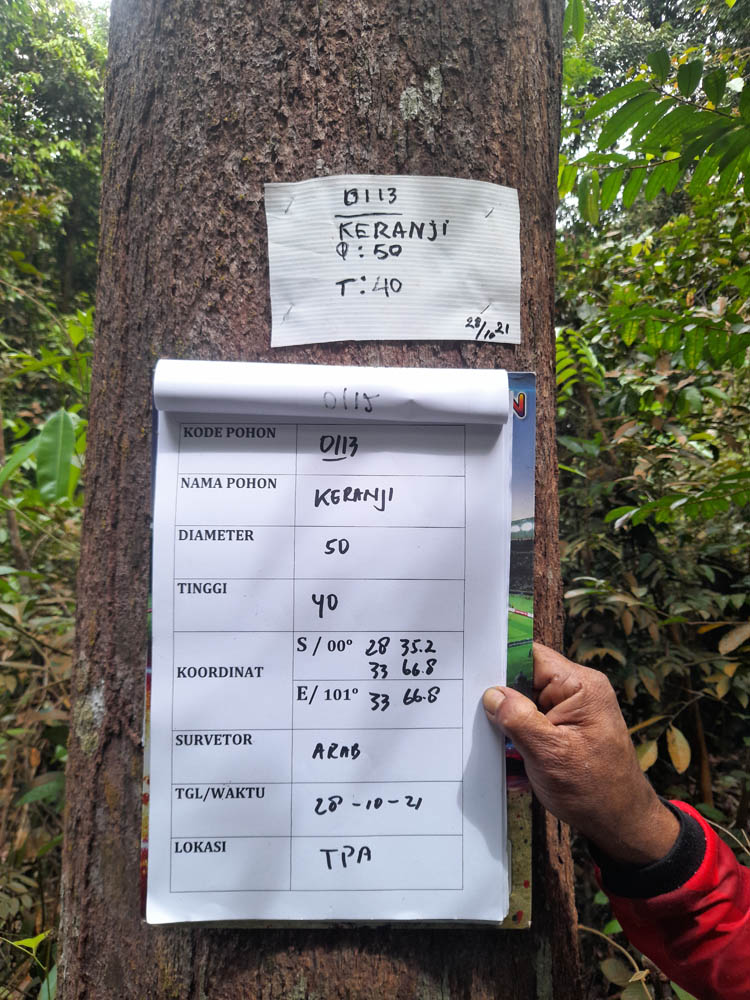 0113
KERANJI
Φ : 50
T : 40
28/10 21
0115
KODE POHON 0113
NAMA POHON KERANJI
DIAMETER 50
TINGGI 40
KOORDINAT
S / 00° 28 35.2
33 66.8
E/ 101° 33 66.8
SURVETOR ARAB
TGL/WAKTU 28-10-21
LOKASI TPA